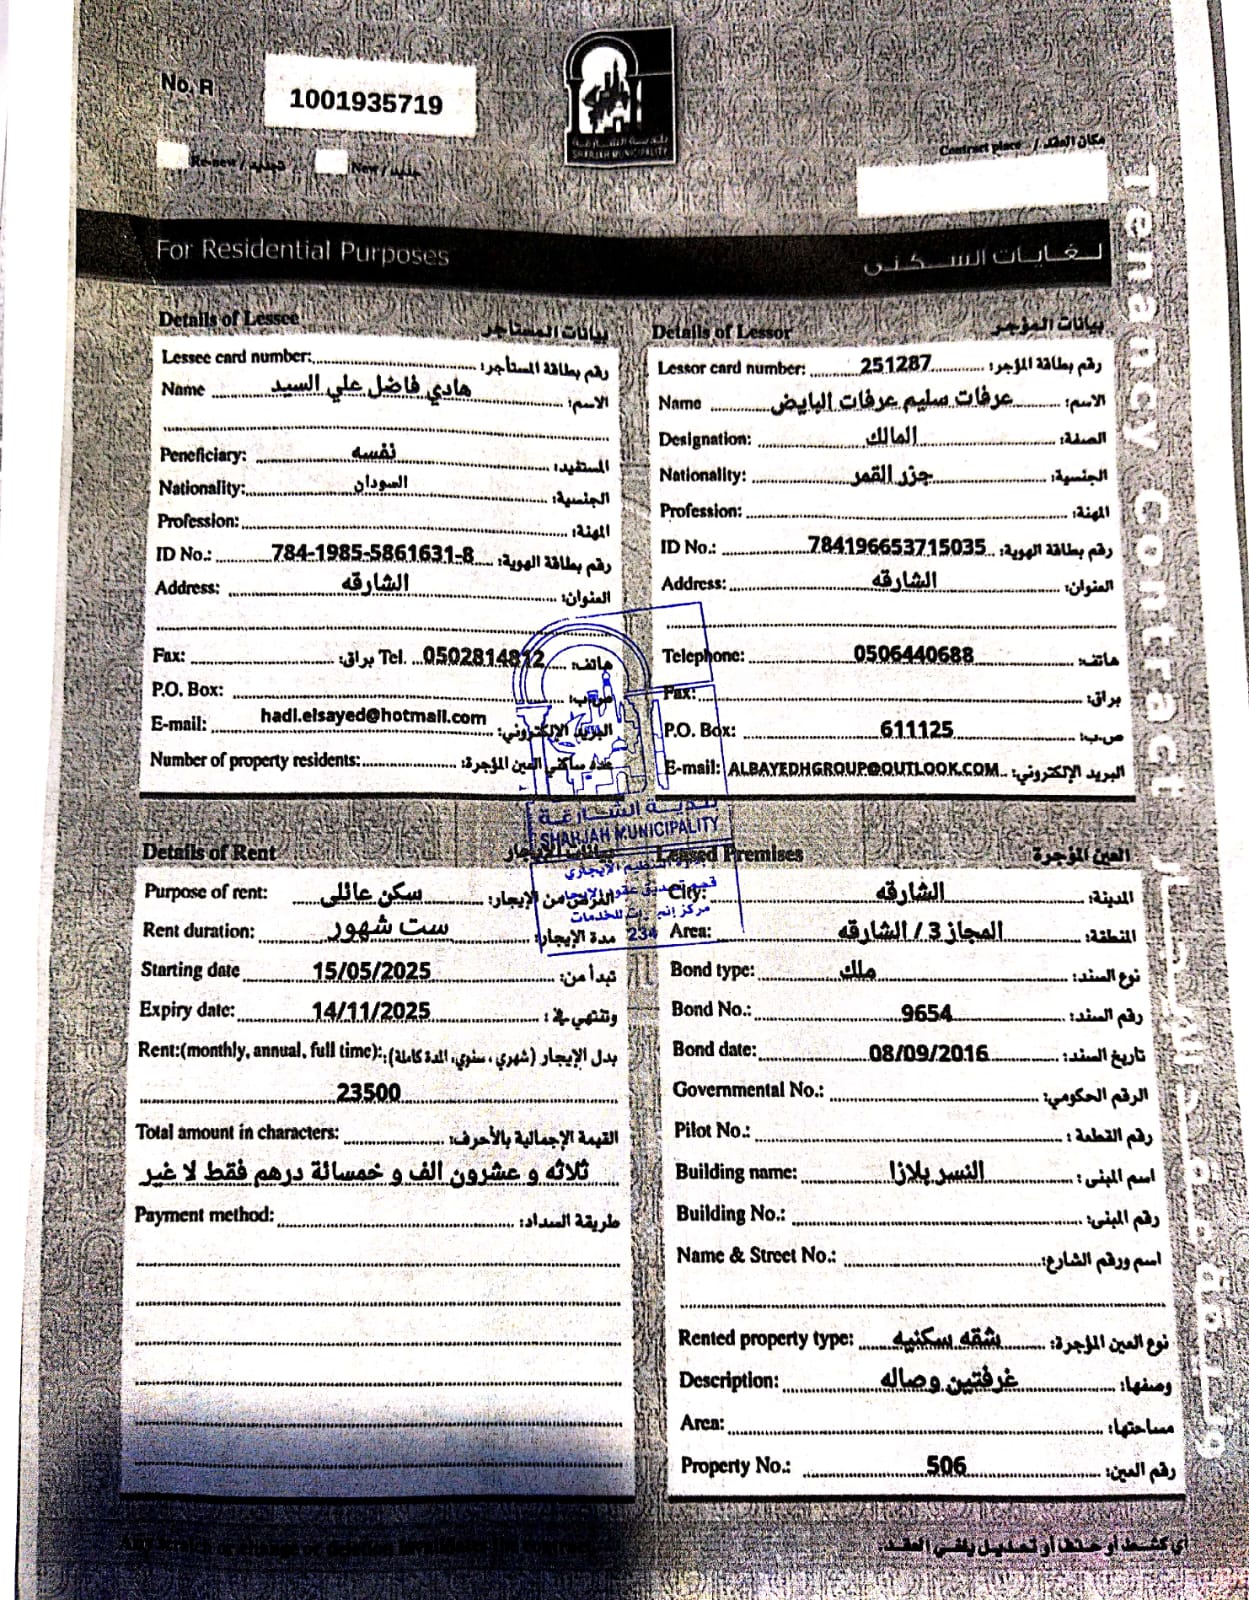 No. R 1001935719
بلدية الشارقة
SHARJAH MUNICIPALITY
Re-new / تجديد New / جديد
Contract place / مكان العقد
Tenancy Contract
For Residential Purposes لغايات السكنى
Details of Lessee بيانات المستأجر
Lessee card number: رقم بطاقة المستأجر:
Name هادي فاضل علي السيد الاسم:
Peneficiary: نفسه المستفيد:
Nationality: السودان الجنسية:
Profession: المهنة:
ID No.: 784-1985-5861631-8 رقم بطاقة الهوية:
Address: الشارقه العنوان:
Fax: براق: Tel. 0502814812 هاتف:
P.O. Box: ص.ب:
E-mail: hadi.elsayed@hotmail.com البريد الإلكتروني:
Number of property residents: عدد ساكني العين المؤجرة:
Details of Lessor بيانات المؤجر
Lessor card number: 251287 رقم بطاقة المؤجر:
Name عرفات سليم عرفات البايض الاسم:
Designation: المالك الصفة:
Nationality: جزر القمر الجنسية:
Profession: المهنة:
ID No.: 784196653715035 رقم بطاقة الهوية:
Address: الشارقه العنوان:
Telephone: 0506440688 هاتف:
Fax: براق:
P.O. Box: 611125 ص.ب:
E-mail: ALBAYEDHGROUP@OUTLOOK.COM البريد الإلكتروني:
بلدية الشارقة
SHARJAH MUNICIPALITY
قسم تصديق عقود الإيجار
للخدمات
234
Details of Rent بيانات الإيجار
Purpose of rent: سكن عائلي الغرض من الإيجار:
Rent duration: ست شهور مدة الإيجار:
Starting date 15/05/2025 تبدأ من:
Expiry date: 14/11/2025 وتنتهي في:
Rent:(monthly, annual, full time): بدل الإيجار (شهري، سنوي، المدة كاملة):
23500
Total amount in characters: القيمة الإجمالية بالأحرف:
ثلاثه و عشرون الف و خمسائة درهم فقط لا غير
Payment method: طريقة السداد:
Leased Premises العين المؤجرة
City: الشارقه المدينة:
Area: المجاز 3 / الشارقه المنطقة:
Bond type: ملك نوع السند:
Bond No.: 9654 رقم السند:
Bond date: 08/09/2016 تاريخ السند:
Governmental No.: الرقم الحكومي:
Pilot No.: رقم القطعة:
Building name: النسر بلازا اسم المبنى:
Building No.: رقم المبنى:
Name & Street No.: اسم ورقم الشارع:
Rented property type: شقه سكنيه نوع العين المؤجرة:
Description: غرفتين وصاله وصفها:
Area: مساحتها:
Property No.: 506 رقم العين:
أي كشط أو حذف أو تعديل يلغي العقد